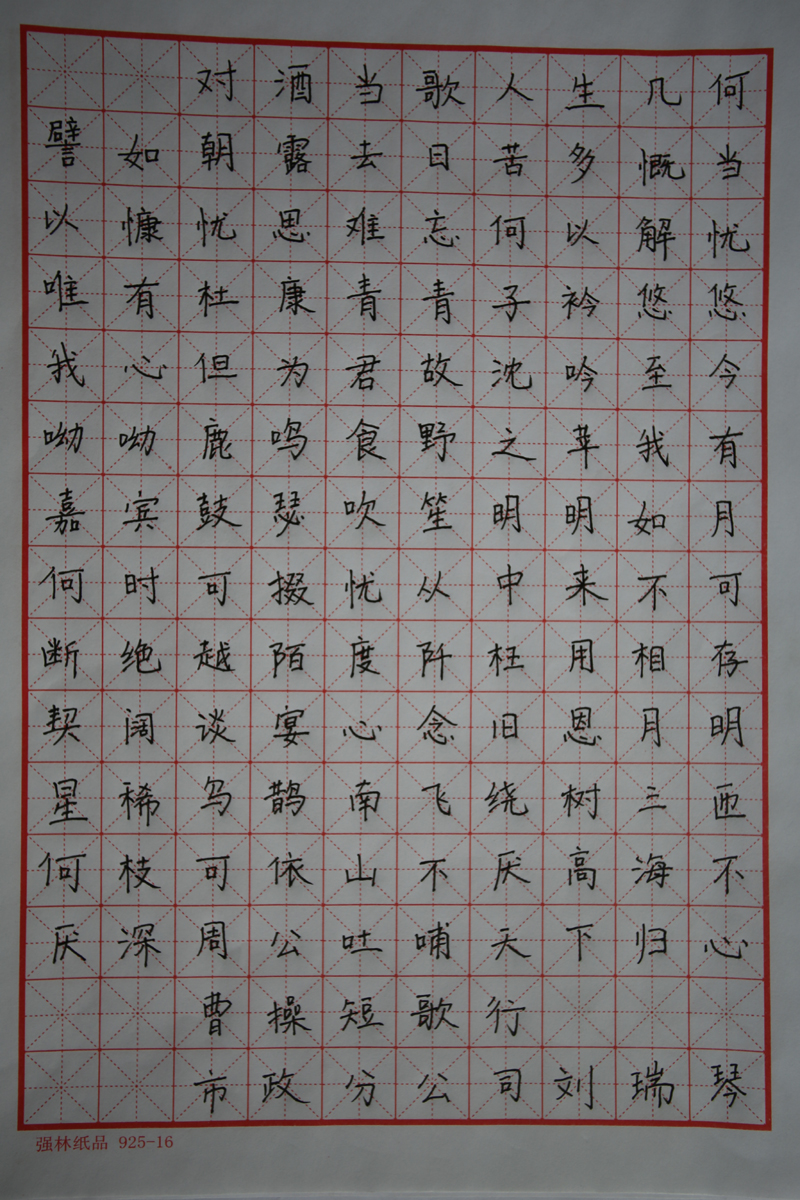 对酒当歌人生几何
譬如朝露去日苦多慨当
以慷忧思难忘何以解忧
唯有杜康青青子衿悠悠
我心但为君故沈吟至今
呦呦鹿鸣食野之苹我有
嘉宾鼓瑟吹笙明明如月
何时可掇忧从中来不可
断绝越陌度阡枉用相存
契阔谈宴心念旧恩月明
星稀乌鹊南飞绕树三匝
何枝可依山不厌高海不
厌深周公吐哺天下归心
曹操短歌行
市政分公司刘瑞琴
强林纸品 925-16